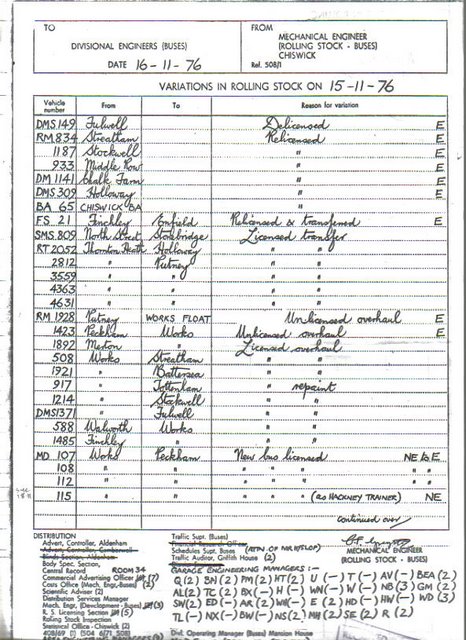 TO
DIVISIONAL ENGINEERS (BUSES)
DATE 16-11-76
FROM
MECHANICAL ENGINEER
(ROLLING STOCK - BUSES)
CHISWICK
Ref. 508/1
VARIATIONS IN ROLLING STOCK ON 15-11-76
Vehicle number From To Reason for variation
DMS 149 Fulwell Delicensed E
RM 834 Streatham Relicensed E
1187 Stockwell " E
933 Middle Row " E
DM 1141 Chalk Farm " E
DMS 309 Holloway " E
BA 65 CHISWICK BA "
FS 21 Finchley Enfield Relicensed & transferred E
SMS 809 North Street Stockbridge Licensed transfer
RT 2052 Thornton Heath Holloway " "
2812 " Putney " "
3559 " " " "
4363 " " " "
4631 " " " "
RM 1928 Putney WORKS FLOAT Unlicensed overhaul E
1423 Peckham Works Unlicensed overhaul E
1892 Merton " Licensed overhaul
508 Works Streatham " "
1921 " Battersea " "
917 " Tottenham " repaint
1214 " Stockwell " "
DMS 1371 " Fulwell " "
588 Walworth Works " "
1485 Finchley " " "
MD 107 Works Peckham New bus licensed NE & E
108 " " " " "
112 " " " " "
115 " " " " (as HACKNEY TRAINER) NE
continued over
DISTRIBUTION
Advert, Controller, Aldenham
Body Spec, Section,
Central Record ROOM 34
Commercial Advertising Officer (7)
Costs Office (Mech. Engr.-Buses) (2)
Scientific Adviser (2)
Distribution Services Manager
Mech. Engr, (Development - Buses) (3)
R. S. Licensing Section (5)
Rolling Stock Inspection
Statistical Office - Chiswick (2)
408/69 (1) (504 6/71 508)
Traffic Supt. (Buses)
Schedules Supt. Buses (ATTN OF MR HYSLOP)
Traffic Auditor, Griffith House (2)
MECHANICAL ENGINEER
(ROLLING STOCK - BUSES)
GARAGE ENGINEERING MANAGERS :-
Q (2) BN (2) PM (2) HT (2) U (-) T (-) AV (-) BEA (2)
AL (2) TC (2) BX (-) H (-) WN (-) W (-) NB (3) GM (2)
SW (2) ED (-) AR (2) WH (-) E (2) HD (-) HW (-) WD (3)
TL (-) NX (-) BW (-) NS (2) MH (2) SE (2) R (2)
Divl. Operating Manager (Buses) Mansion House